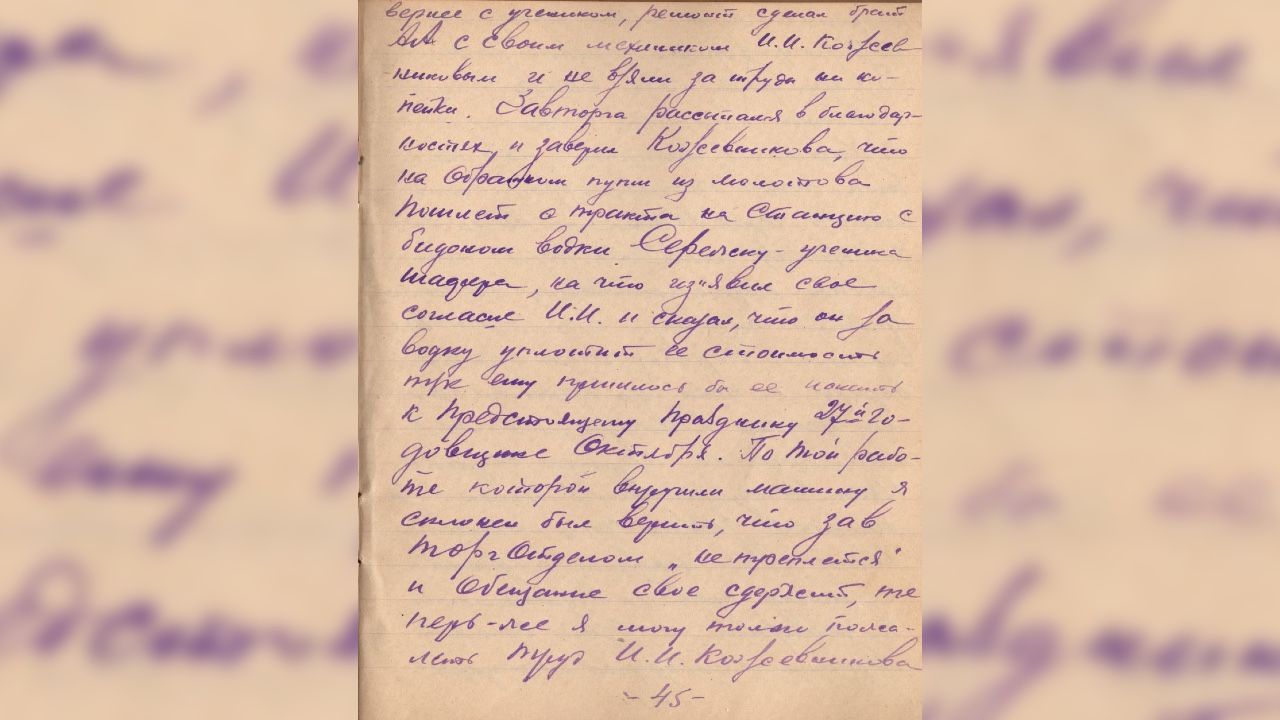 вернее с учеником, ремонт сделал брат
АА с своим механиком И.И. Кожев
никовым и не взяли за труды ни ко-
пейки. Завторга рассыпался в благодар-
ностях и заверил Кожевникова, что
на обратном пути из Молотова
пошлет с тракта на станцию с
бидоном водки Сережку - ученика
шофера, на что из"явил свое
согласие И.И. и сказал, что он за
водку уплотит ее стоимость
т/к ему пришлось бы ее искать
к предстоящему празднику 27й го-
довщине Октября. По той рабо-
те которой выручили машину я
склонен был верить, что зав
торготделом „не треплется"
и обещание свое сдержит, те
перь-же я могу только пожа-
леть труд И.И. Кожевникова
- 45 -